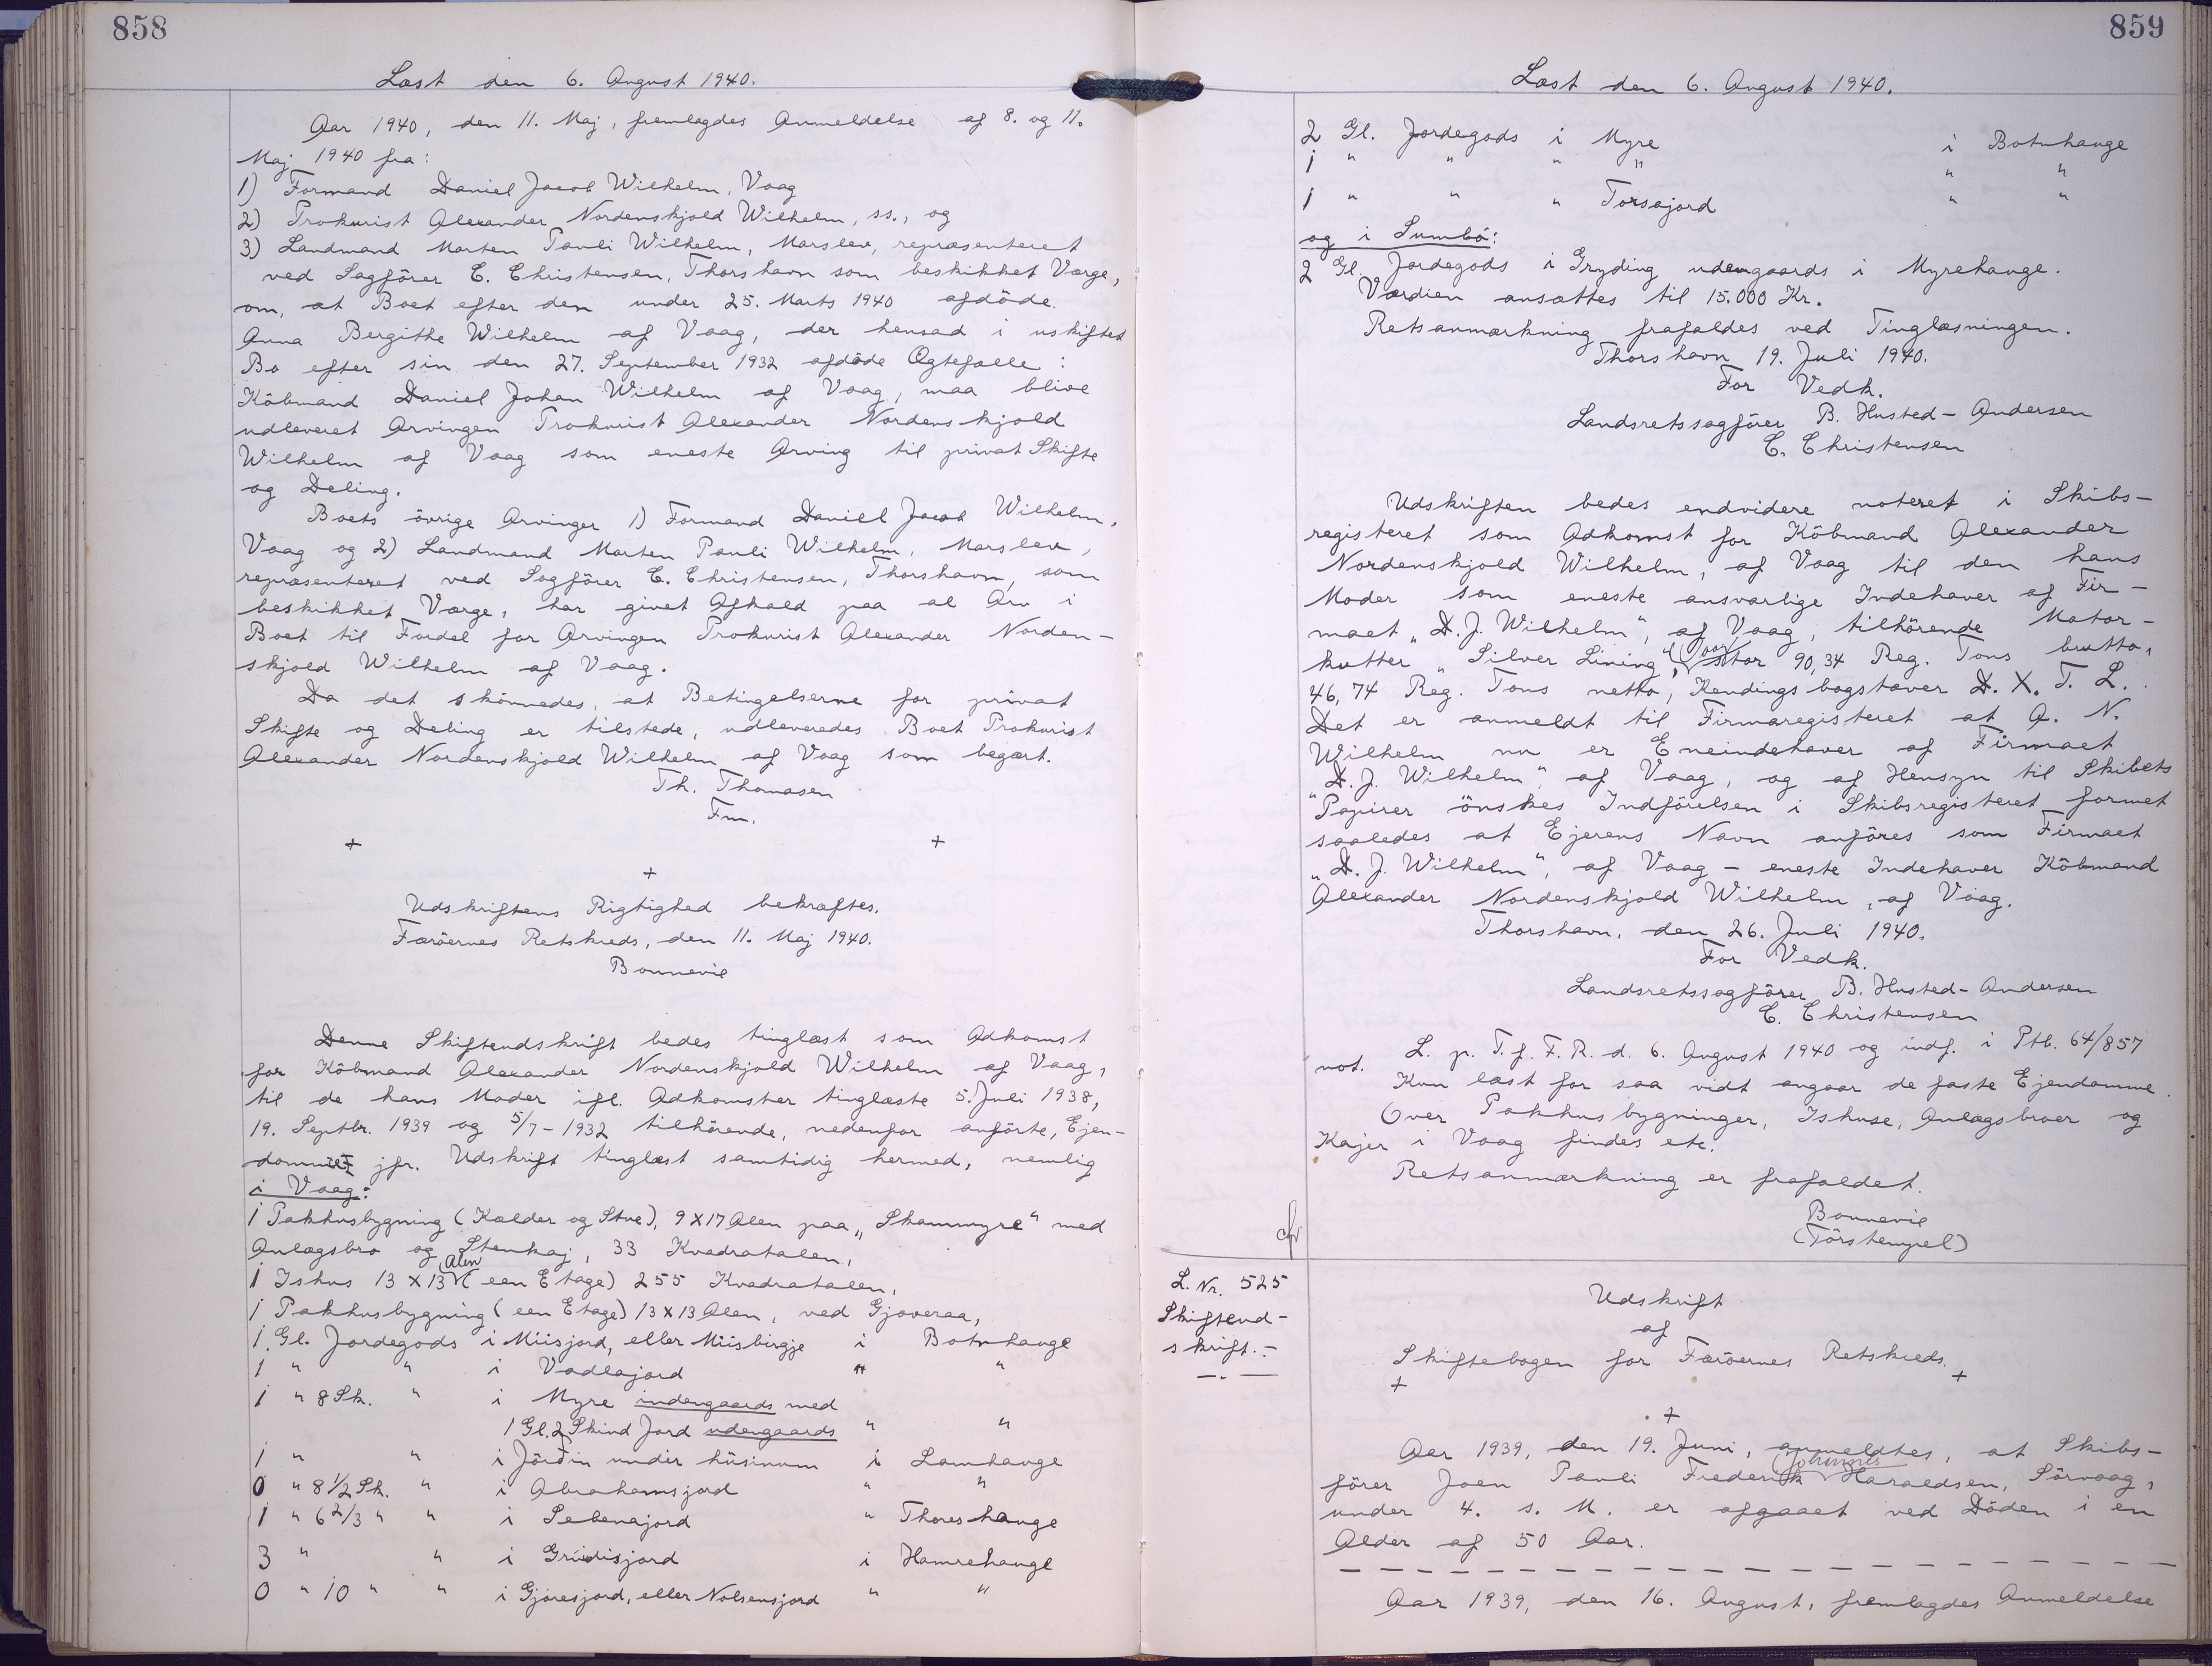 858
Læst den 6. August 1940.
Aar 1940, den 11. Maj, fremlagdes Anmeldelse af 8. og 11.
Maj 1940 fra:
1) Formand Daniel Jacob Wilhelm, Vaag
2) Prokurist Alexander Nordenskjold Wilhelm, ss., og
3) Landmand Morten Pauli Wilhelm, Marslev, repræsenteret
ved Sagförer C. Christensen, Thorshavn som beskikket Værge,
om, at Boet efter den under 25. Marts 1940 afdöde
Anna Bergithe Wilhelm af Vaag, der hensad i uskiftet
Bo efter sin den 27. September 1932 afdöde Ægtefælle:
Köbmand Daniel Johan Wilhelm af Vaag, maa blive
udleveret Arvingen Prokurist Alexander Nordenskjold
Wilhelm af Vaag som eneste Arving til privat Skifte
og Deling.
Boets övrige Arvinger 1) Formand Daniel Jacob Wilhelm,
Vaag og 2) Landmand Morten Pauli Wilhelm, Marslev,
repræsenteret ved Sagförer C. Christensen, Thorshavn, som
beskikket Værge, har givet Afkald paa al Arv i
Boet til Fordel for Arvingen Prokurist Alexander Norden-
skjold Wilhelm af Vaag.
Da det skönnedes, at Betingelserne for privat
Skifte og Deling er tilstede, udleveredes Boet Prokurist
Alexander Nordenskjold Wilhelm af Vaag som begært.
Th. Thomasen
Fm.
+ +
+
Udskriftens Rigtighed bekræftes.
Færöernes Retskreds, den 11. Maj 1940.
Bonnevie
Denne Skifteudskrift bedes tinglæst som Adkomst
for Köbmand Alexander Nordenskjold Wilhelm af Vaag,
til de hans Moder ifl. Adkomster tinglæste 5. Juli 1938,
19. Septbr. 1939 og 5/7-1932 tilhörende, nedenfor anförte, Ejen-
domme jfr. Udskrift tinglæst samtidig hermed, nemlig
i Vaag:
1 Pakhusbygning (Kælder og Stue), 9 X 17 Alen paa „Skammyre“ med
Anlægsbro og Stenkaj, 33 Kvadratalen,
1 Ishus 13 X 13 Alen (een Etage) 255 Kvadratalen,
1 Pakhusbygning (een Etage) 13 X 13 Alen, ved Gjoveraa,
1 Gl. Jordegods i Miisjord, eller Miisbirgje i Botnhauge
1 " " i Vadlajord " "
1 " 8 Sk. " i Myre indengaards med
1 Gl. 2 Skind Jord udengaards " "
1 " " i Jörðin undir húsinum i Lamhauge
0 " 8 1/2 Sk. " i Abrahamsjord " "
1 " 6 2/3 " " i Sebenajord " Thoreshauge
3 " " i Griidisjord i Hamrehauge
0 " 10 " " i Gjoresjord, eller Nolsensjord " "
859
Læst den 6. August 1940.
2 Gl. Jordegods i Myre i Botnhauge
1 " " " " " "
1 " " " Torsajord " "
og i Sumbö:
2 Gl. Jordegods i Gryding udengaards i Myrehauge.
Værdien ansættes til 15.000 Kr.
Retsanmærkning frafaldes ved Tinglæsningen.
Thorshavn 19. Juli 1940.
For Vedk.
Landsretssagförer B. Husted-Andersen
C. Christensen
Udskriften bedes endvidere noteret i Skibs-
registeret som Adkomst for Köbmand Alexander
Nordenskjold Wilhelm, af Vaag til den hans
Moder som eneste ansvarlige Indehaver af Fir-
maet „D. J. Wilhelm“, af Vaag, tilhörende Motor-
kutter „Silver Lining“, stor 90,34 Reg. Tons brutto,
46,74 Reg. Tons netto, Kendingsbogstaver D. X. T. L.
Det er anmeldt til Firmaregisteret at A. N.
Wilhelm nu er Eneindehaver af Firmaet
„D. J. Wilhelm“, af Vaag, og af Hensyn til Skibets
Papirer önskes Indförelsen i Skibsregisteret formet
saaledes at Ejerens Navn anföres som Firmaet
„D. J. Wilhelm“, af Vaag - eneste Indehaver Köbmand
Alexander Nordenskjold Wilhelm, af Vaag.
Thorshavn, den 26. Juli 1940.
For Vedk.
Landsretssagförer B. Husted-Andersen
C. Christensen
not. L. p. T. f. F. R. d. 6. August 1940 og indf. i Ptb. 64/857
Kun læst for saa vidt angaar de faste Ejendomme.
Over Pakhusbygninger, Ishuse, Anlægsbroer og
Kajer i Vaag findes etc.
Retsanmærkning er frafaldet.
Bonnevie
(Törstempel)
cfr
L. Nr. 525
Skifteud-
skrift.-
Udskrift
af
Skiftebogen for Færöernes Retskreds.
+ +
+
Aar 1939, den 19. Juni, anmeldtes, at Skibs-
förer Joen Pauli Frederik Johannes Haraldsen, Sörvaag,
under 4. s. M. er afgaaet ved Döden i en
Alder af 50 Aar.
Aar 1939, den 16. August, fremlagdes Anmeldelse